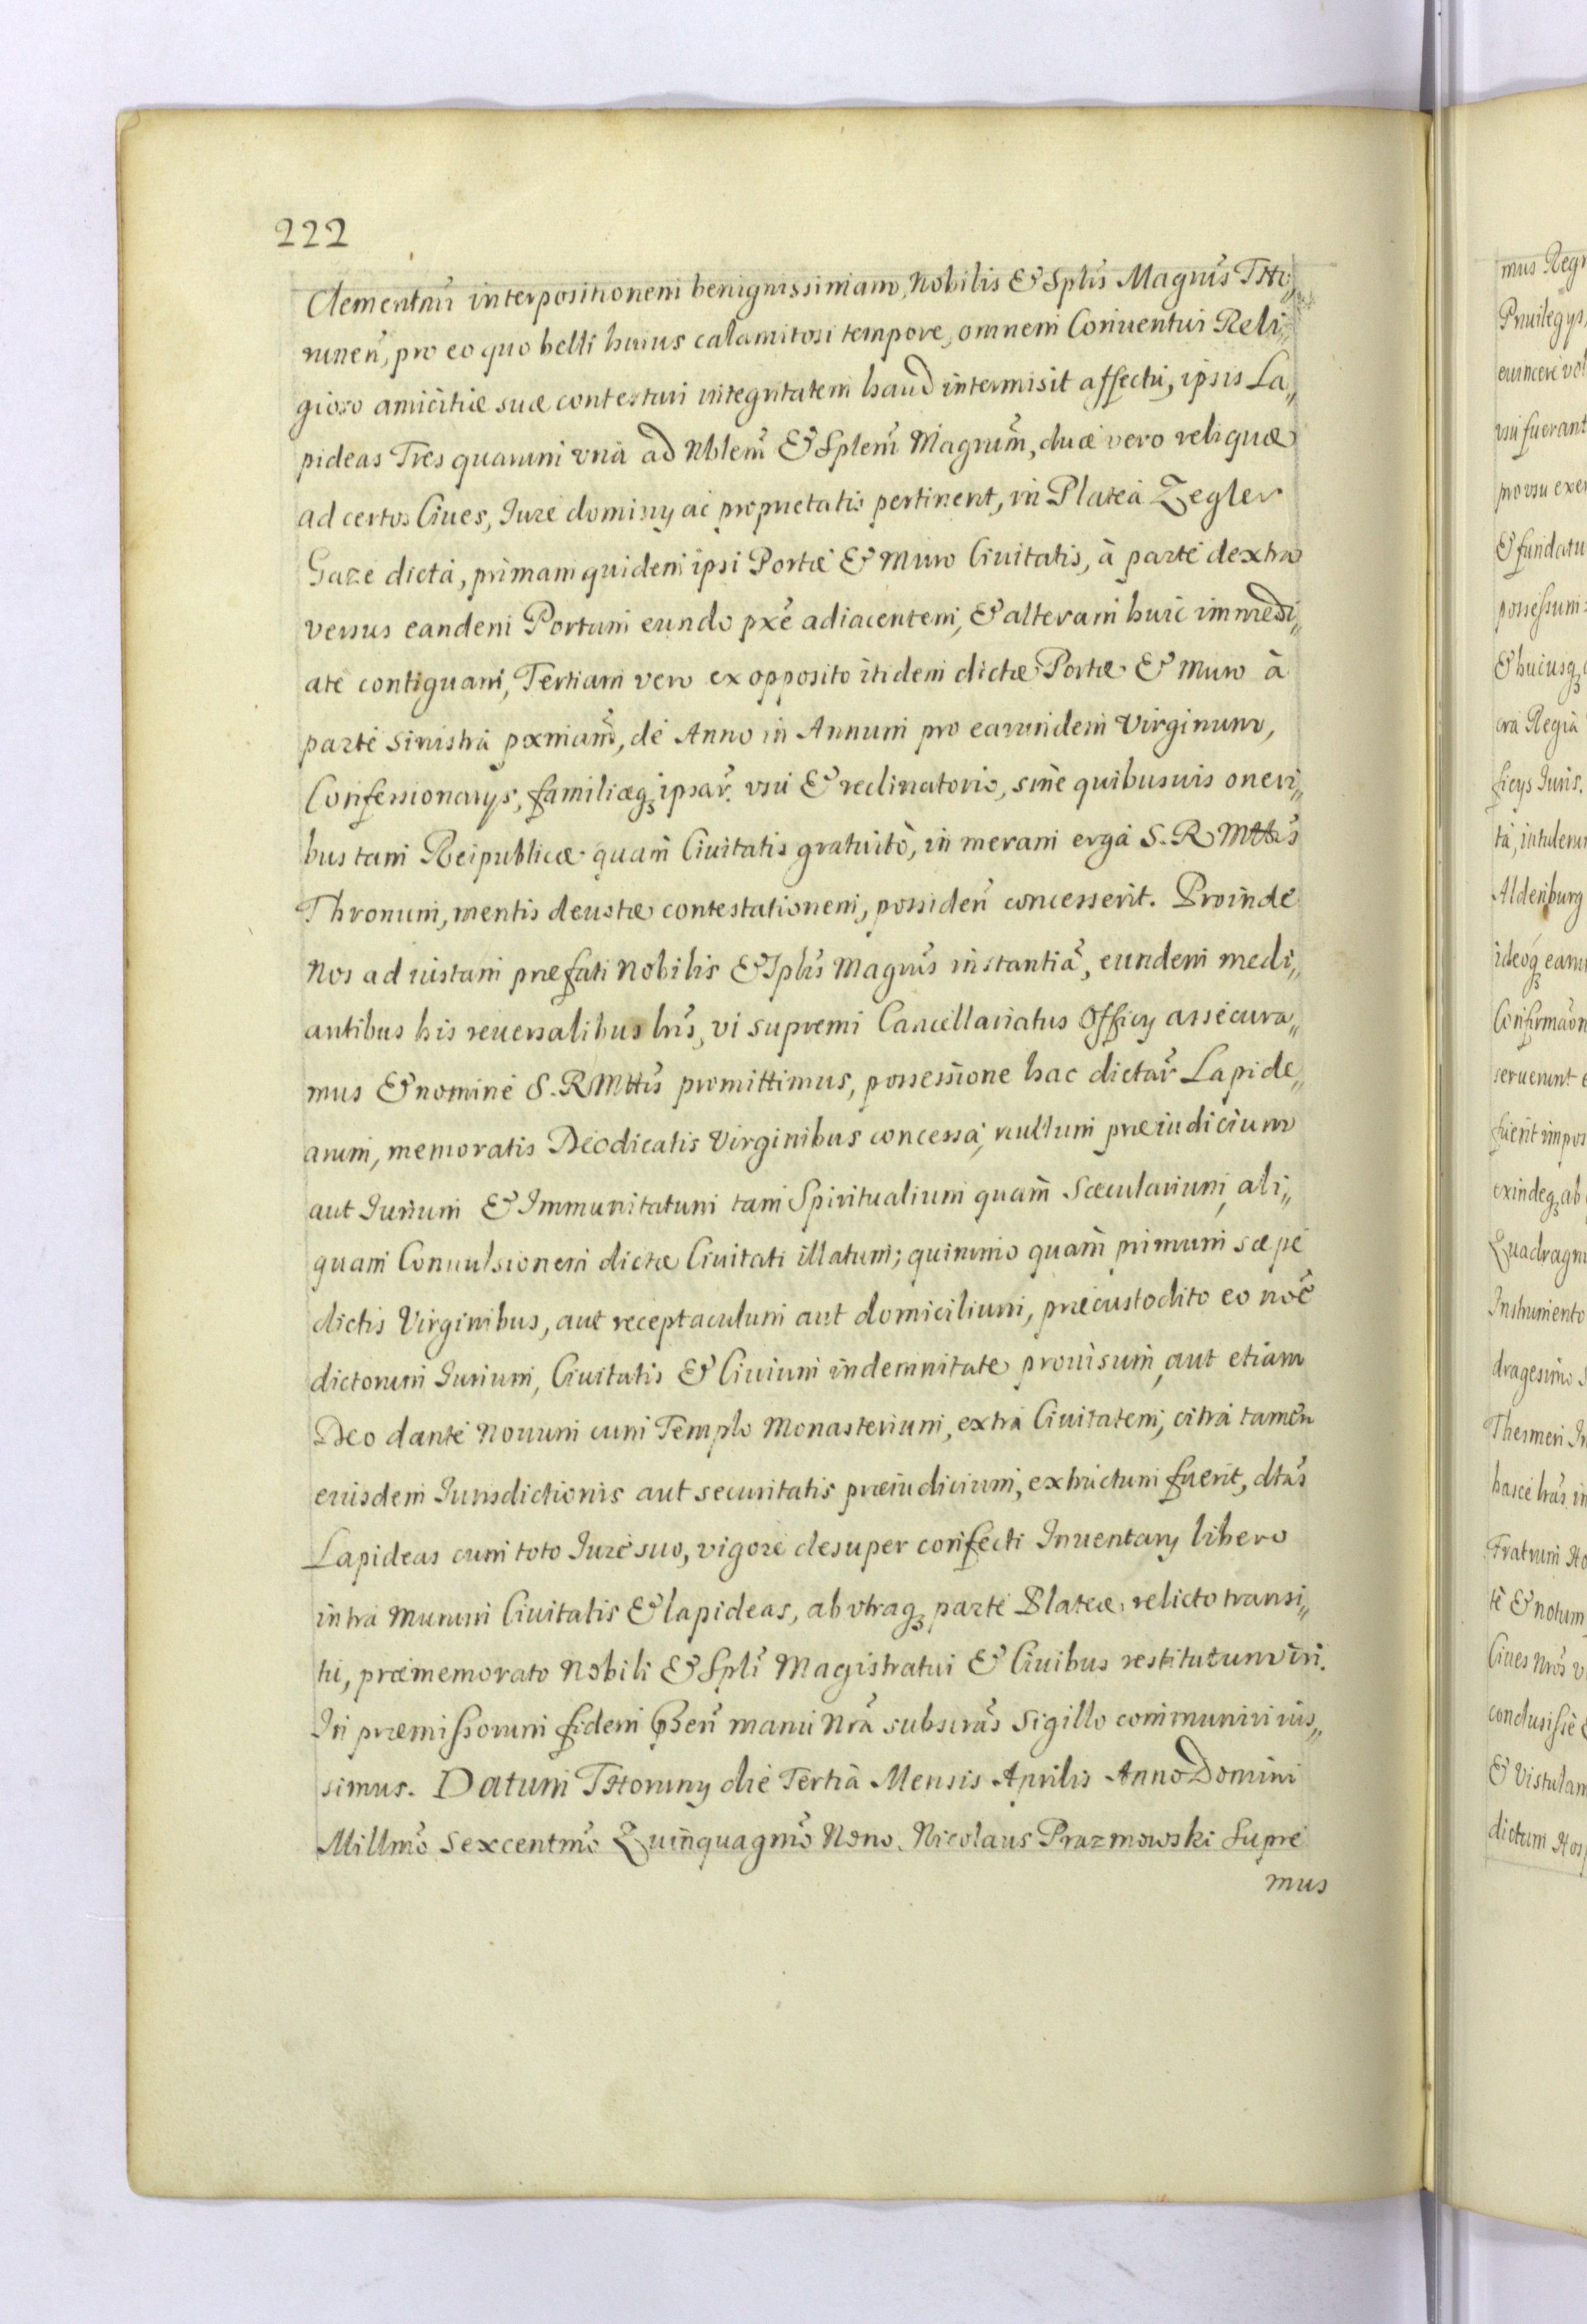 222
Clementmu interpositionem benignissimam, Nobilis & Splis Magnus THo,,
runen, pro eo quo belli huius calamitosi tempore, omnem Conuentui Reli,,
gioso amicitiæ suæ contestari integritatem haud intermisit affectu, ipsis La,,
pideas Tres quarum vnà ad Nblem & Splem Magnum, duæ vero reliquæ
ad certos Ciues, Jure dominy ac proprietatis pertinent, in Plateà Zegler
Gaze dictà, primam quidem ipsi Portæ & Muro Ciuitatis, à parte dextra
versus eandem Portam eundo pxe adiacentem, & alteram huic immedi,,
ate contiguam, Tertiam vero ex opposito itidem dictæ Portæ & Muro à
parte sinistrà pxmam, de Anno in Annum pro earundem Virginum,
Confessionarys, familiæq ipsar. vsu & reclinatorio, sine quibusuis oneri,,
bus tam Reipublicæ quam Ciuitatis gratuitò, in meram ergà S. R Mttis
Thronum, mentis deuotæ contestationem, possiden concesserit. Proinde
Nos ad iustam præfati Nobilis & Splis Magnus instantiã, eundem medi,,
antibus his reuersalibus lris, vi supremi Cancellariatus Officy assecura,,
mus & nomine S. R Mttis promittimus, possessione hac dictar Lapide,,
arum, memoratis Deodicatis Virginibus concessà, nullum præiudicium
aut Jurium & Immunitatum tam Spiritualium quam Sæcularium, ali,,
quam Conuulsionem dictæ Ciuitati illatum; quinimo quam primum sæpe
dictis Virginibus, aut receptaculum aut domicilium, præcustodito eo noe
dictorum Jurium, Ciuitatis & Ciuium indemnitate prouisum, aut etiam
Deo dante Nouum cum Templo Monasterium, extrà Ciuitatem, citrà tamen
eiusdem Jurisdictionis aut securitatis præiudicium, extructum fuerit, dtas
Lapideas cum toto Jure suo, vigore desuper confecti Inuentary libero
intra Murum Ciuitatis & lapideas, ab vtraq parte Plateæ, relicto transi,,
tu, præmemorato Nobili & Spli Magistratui & Ciuibus restitutum iri.
In præmissorum fidem Psen manu Nra subscras Sigillo communiri ius,,
simus. Datum THoruny die Tertià Mensis Aprilis Anno Domini
Millmo Sexcentmo Quinquagmo Nono. Nicolaus Prazmowski Supre
mus
mus Reg
Priuilegys,
euincere vol
vsu fuerant
pro vsu exer
& fundatu
possessum
& hucusq
crà Regià
ficys Juris.
tà, intuleru
Aldenburg
ideoq eam
Confirmaon
seruerunt
fuerit impos
exindeq ab
Quadragm
Instrumento
dragesimo
Thesmeri
hasce lras in
Fratrum
te & notum
Ciues Nros
conclusisse
& Vistulam
dictum Hos